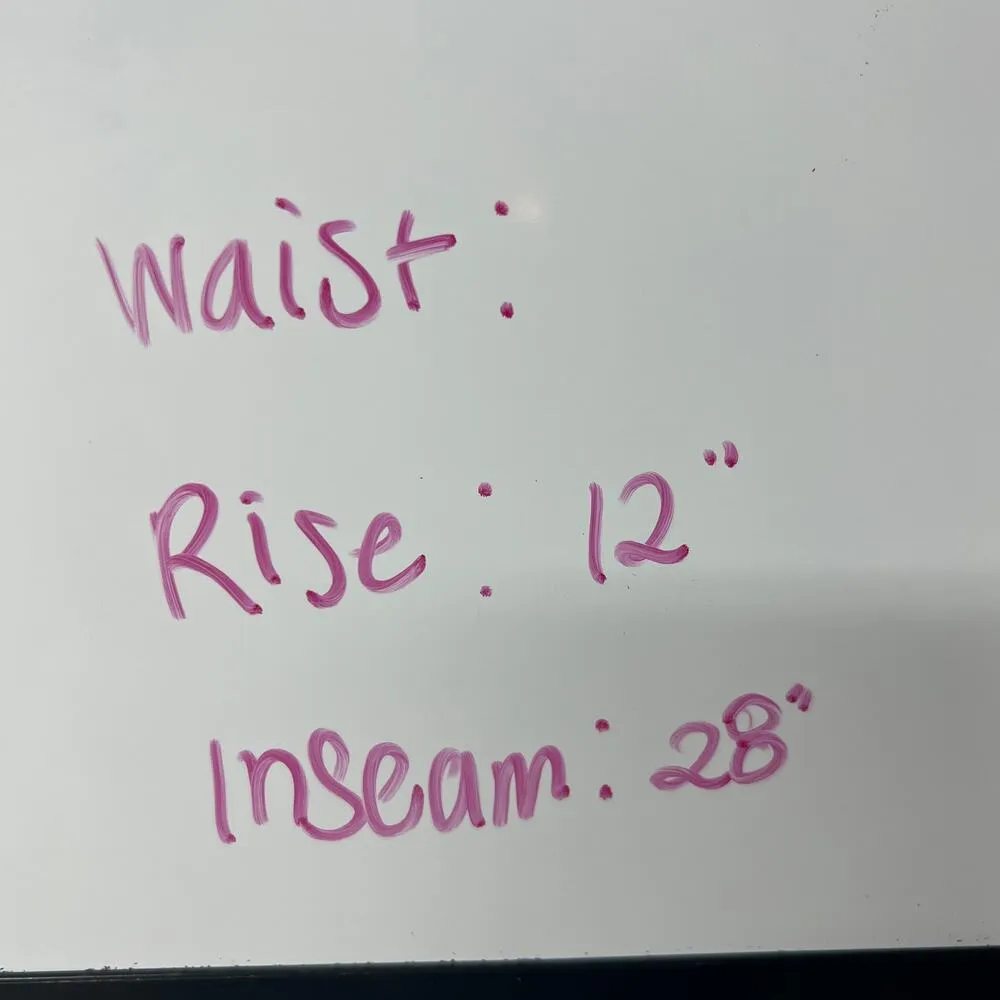 Waist:
Rise: 12"
Inseam: 28"